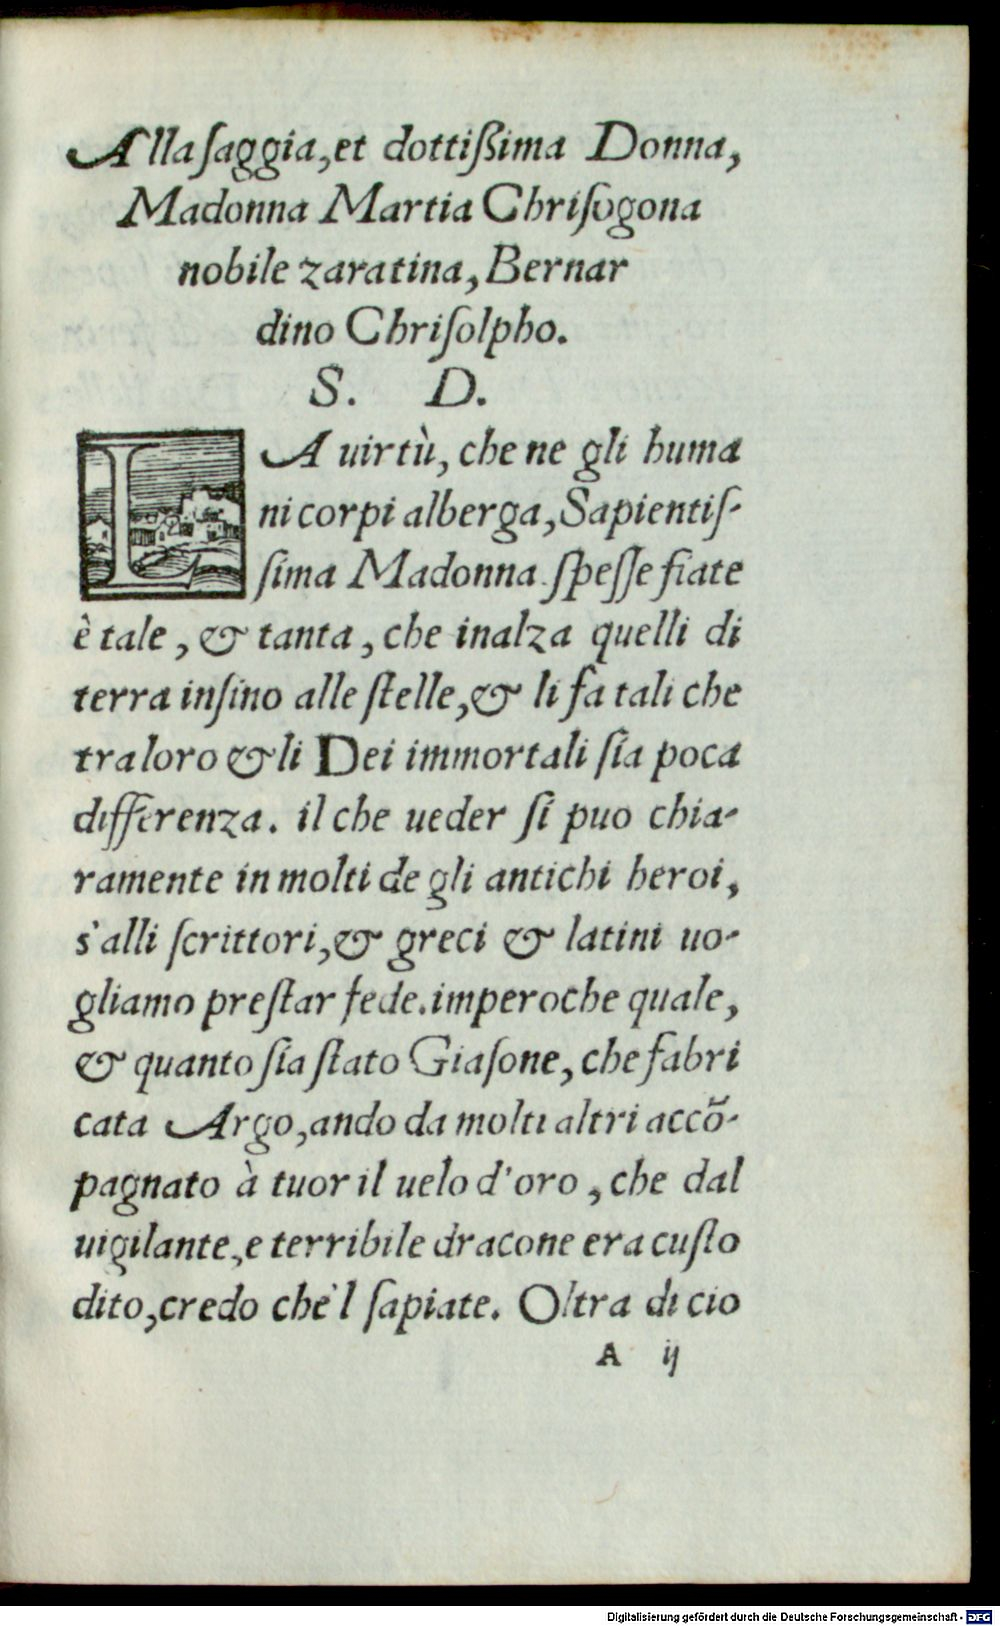 Alla saggia, et dottißima Donna,
Madonna Martia Chriſogona
nobile zaratina, Bernar
dino Chriſolpho.
S. D.
LA uirtù, che ne gli huma
ni corpi alberga, Sapientiſ-
ſima Madonna ſpeſſe fiate
è tale, & tanta, che inalza quelli di
terra inſino alle ſtelle, & li fa tali che
tra loro & li Dei immortali ſia poca
differenza. il che ueder ſi puo chia-
ramente in molti de gli antichi heroi,
s'alli ſcrittori, & greci & latini uo-
gliamo preſtar fede. imperoche quale,
& quanto ſia ſtato Giaſone, che fabri
cata Argo, ando da molti altri accõ-
pagnato à tuor il uelo d'oro, che dal
uigilante, e terribile dracone era cuſto
dito, credo che'l ſapiate. Oltra di cio
A ij
Digitalisierung gefördert durch die Deutsche Forschungsgemeinschaft - DFG